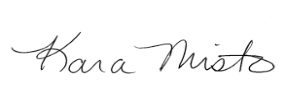 Kara Misto